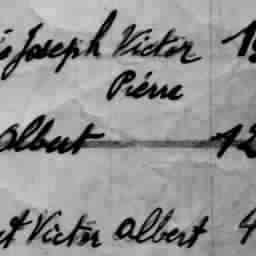 Joseph Victor 19
Pierre
Albert 12
Victor Albert 4